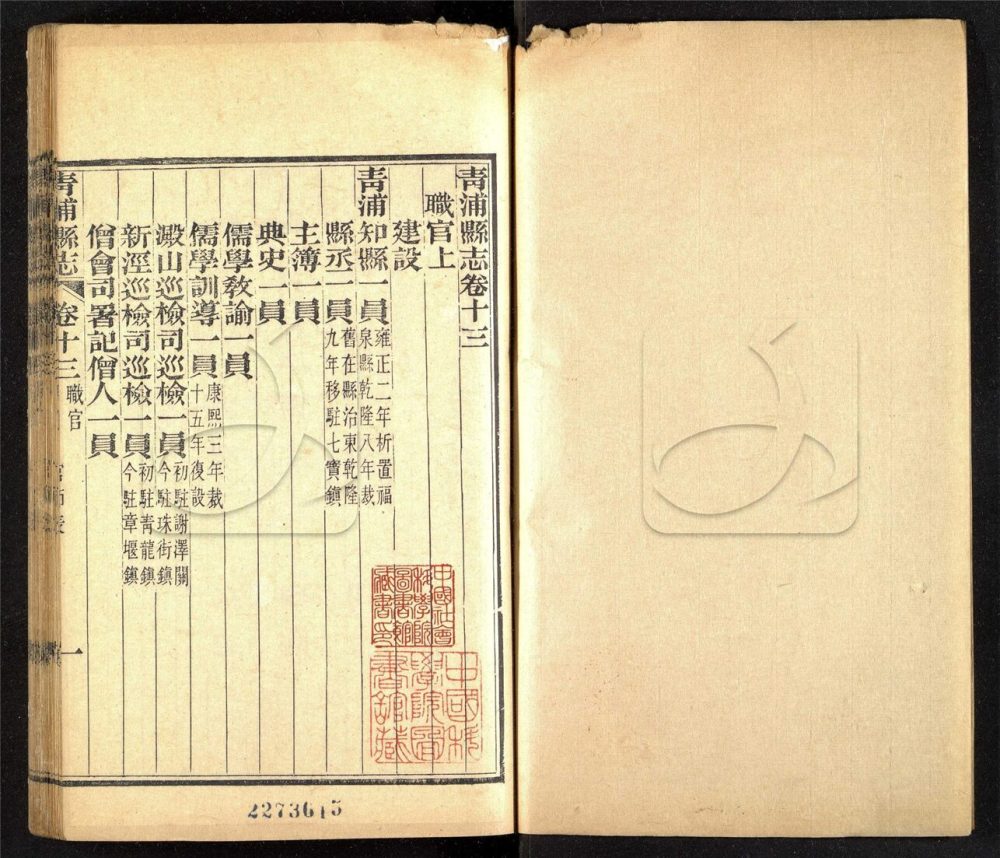 青浦縣志卷十三
職官上
建設
青浦知縣一員雍正二年析置福
泉縣乾隆八年裁
縣丞一員舊在縣治東乾隆
九年移駐七寶鎮
主簿一員
典史一員
儒學教諭一員
儒學訓導一員康熙三年裁
十五年復設
澱山巡檢司巡檢一員初駐謝澤關
今駐珠街鎮
新涇巡檢司巡檢一員初駐青龍鎮
今駐章堰鎮
僧會司署記僧人一員
青浦縣志 卷十三 職官 一
中國社會
科學院
圖書館
藏書印
中國科
學院圖
書館藏
2273615